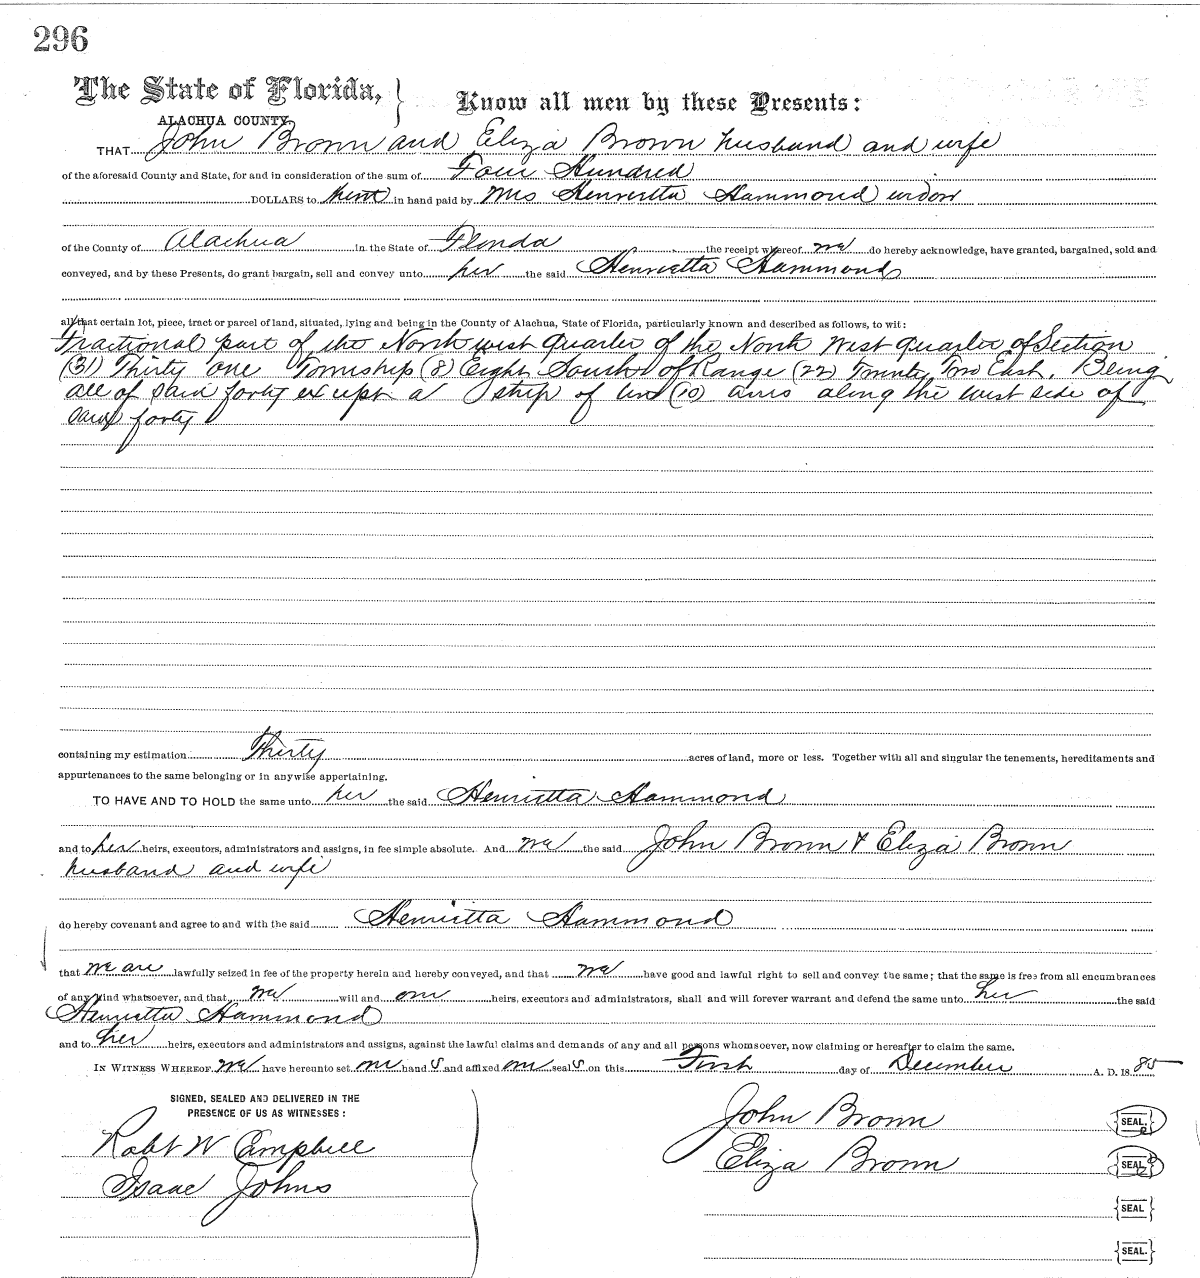 296
The State of Florida, } Know all men by these Presents:
ALACHUA COUNTY.
THAT John Brown and Eliza Brown husband and wife
of the aforesaid County and State, for and in consideration of the sum of Four Hundred
DOLLARS to them in hand paid by Mrs Henrietta Hammond widow
of the County of Alachua in the State of Florida the receipt whereof we do hereby acknowledge, have granted, bargained, sold and
conveyed, and by these Presents, do grant bargain, sell and convey unto her the said Henrietta Hammond
all that certain lot, piece, tract or parcel of land, situated, lying and being in the County of Alachua, State of Florida, particularly known and described as follows, to wit:
Fractional part of the North west quarter of the North West quarter of Section
(31) Thirty one Township (8) Eight South of Range (22) Twenty Two East, Being
all of said forty except a strip of ten (10) acres along the west side of
said forty
containing my estimation Thirty acres of land, more or less. Together with all and singular the tenements, hereditaments and
appurtenances to the same belonging or in anywise appertaining.
TO HAVE AND TO HOLD the same unto her the said Henrietta Hammond
and to her heirs, executors, administrators and assigns, in fee simple absolute. And we the said John Brown & Eliza Brown
husband and wife
do hereby covenant and agree to and with the said Henrietta Hammond
that we are lawfully seized in fee of the property herein and hereby conveyed, and that we have good and lawful right to sell and convey the same; that the same is free from all encumbrances
of any kind whatsoever, and that we will and our heirs, executors and administrators, shall and will forever warrant and defend the same unto her the said
Henrietta Hammond
and to her heirs, executors and administrators and assigns, against the lawful claims and demands of any and all persons whomsoever, now claiming or hereafter to claim the same.
IN WITNESS WHEREOF we have hereunto set our hand s and affixed our seal s on this First day of December A. D. 18 85
SIGNED, SEALED AND DELIVERED IN THE
PRESENCE OF US AS WITNESSES:
John Brown {SEAL.}
Robt W Campbell
Eliza Brown {SEAL.}
Isaac Johns
{SEAL}
{SEAL.}